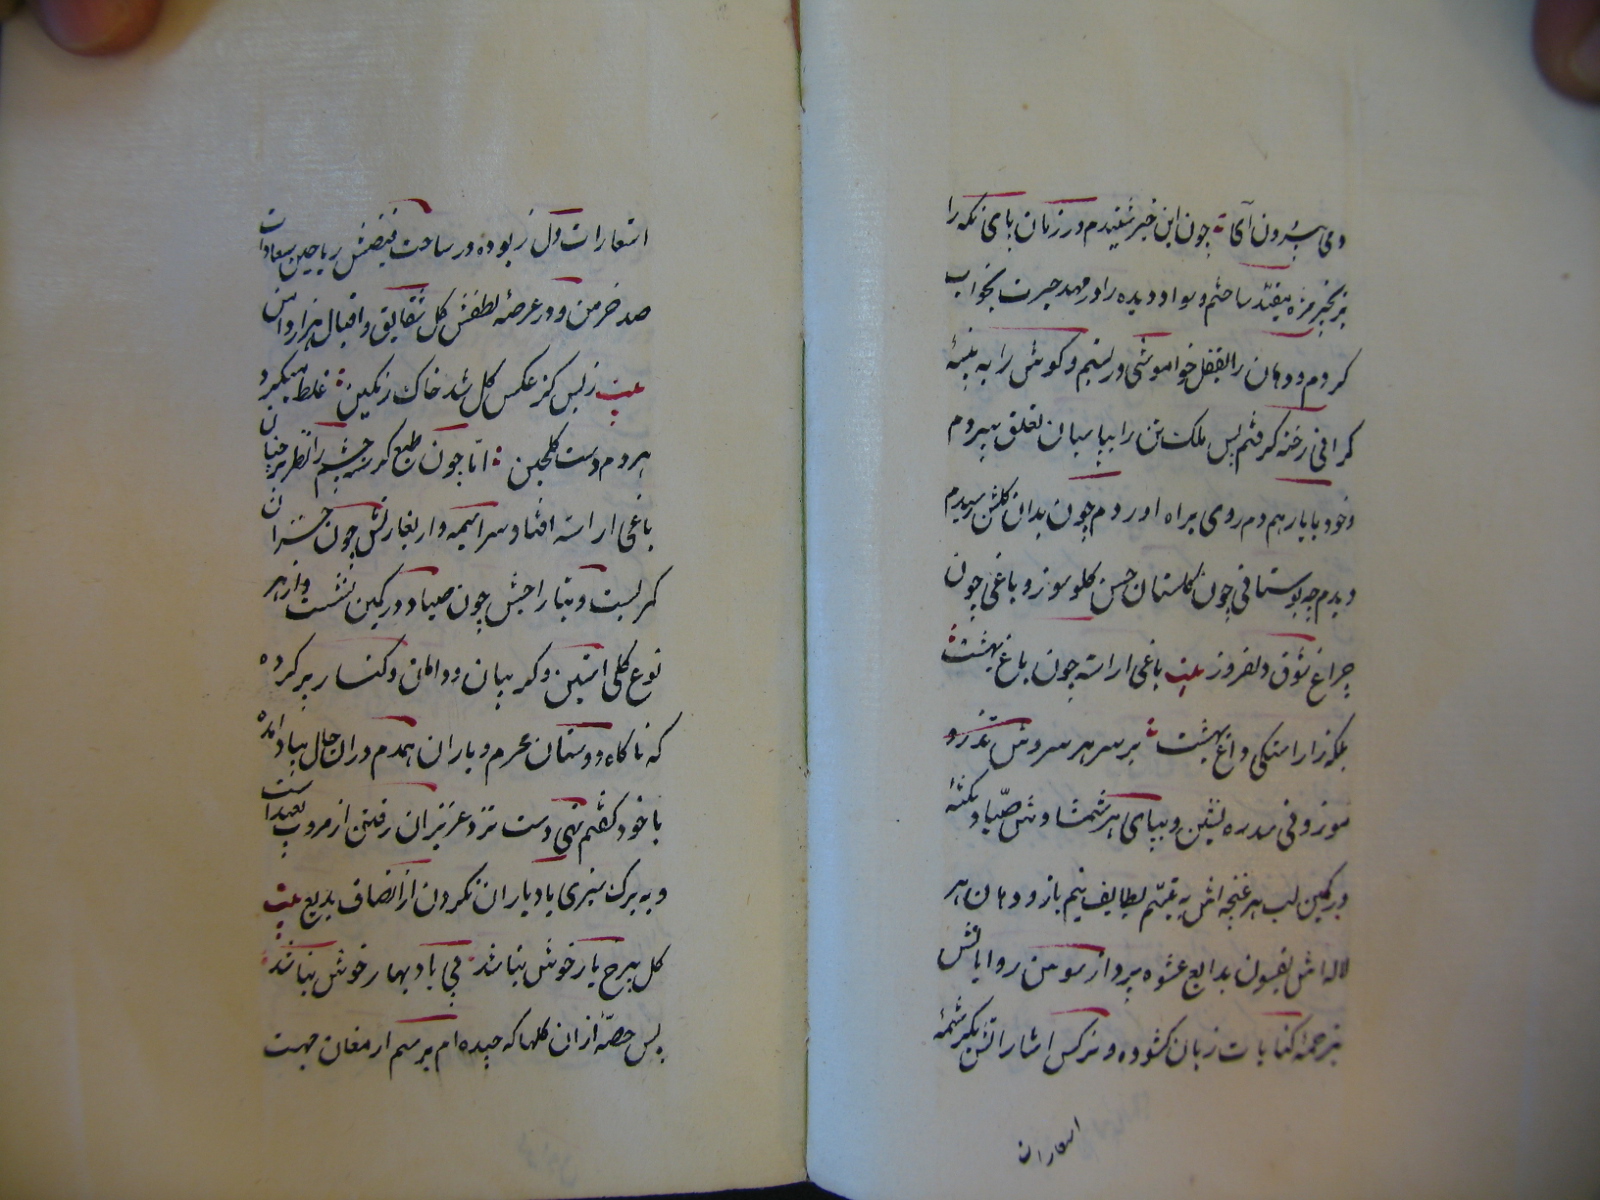 دمی بیرون آی چون این خبر شنیدم در زمان پای نکه را
بزنجیر مژه مقید ساختم و سواد دیده را در مهد حیرت بخواب
کردم و دهان را بقفل خواموشی در بستم و کوش را به پنبهٔ
کرانی رخنه کرفتم پس ملکت تن را بپاسبان تعلق سپردم
و خود با یار همدم روی براه اوردم چون بدان کلشن رسیدم
دیدم چه بوستانی چون کلستان حسن کلو سوز و باغی چون
چراغ شوق دلفروز بیت باغی اراسته چون باغ بهشت
بلکه زاراستکی داغ بهشت بر سر هر سروش تذرو
موزونی سدره نشین و بپای هر شمشادش صیاد نکتهٔ
در کمین لب هر غنچه اش به تبسم لطایف نیم باز و دهان هر
لاله اش بفسون بدایع عشوه پرداز سوسن روایاتش
بترجمهٔ کنایات زبان کشوده و نرکس اشاراتش بکرشمهٔ
استعارات
استعارات دل ربوده در ساحت فیضش ریاحین سعادات
صد خرمن و در عرصهٔ لطفش کل شقایق و اقبال هزار دامن
بیت ز بس کز عکس کل شد خاک رنکین غلط میکرد
هر دم دست کلچین اما چون طبع کرسنه چشم را نظر بر چنان
باغی اراسته افتاد سراسیمه وار بغارتش چون خزان
کمر بست و بتاراجش چون صیاد در کمین نشست و از هر
نوع کلی استین و کریبان و دامن و کنار پر کرده
که ناکاه دوستان محرم و یاران همدم دران حال بیاد امده
با خود کفتم تهی دست نزد عزیزان رفتن از مروت بعید است
و به برک سبزی یاد یاران نکردن از انصاف بدیع بیت
کل بی رخ یار خوش نباشد بی باده بهار خوش نباشد
پس حصهٔ از ان کلها که چیده ام برسم ارمغان جهت